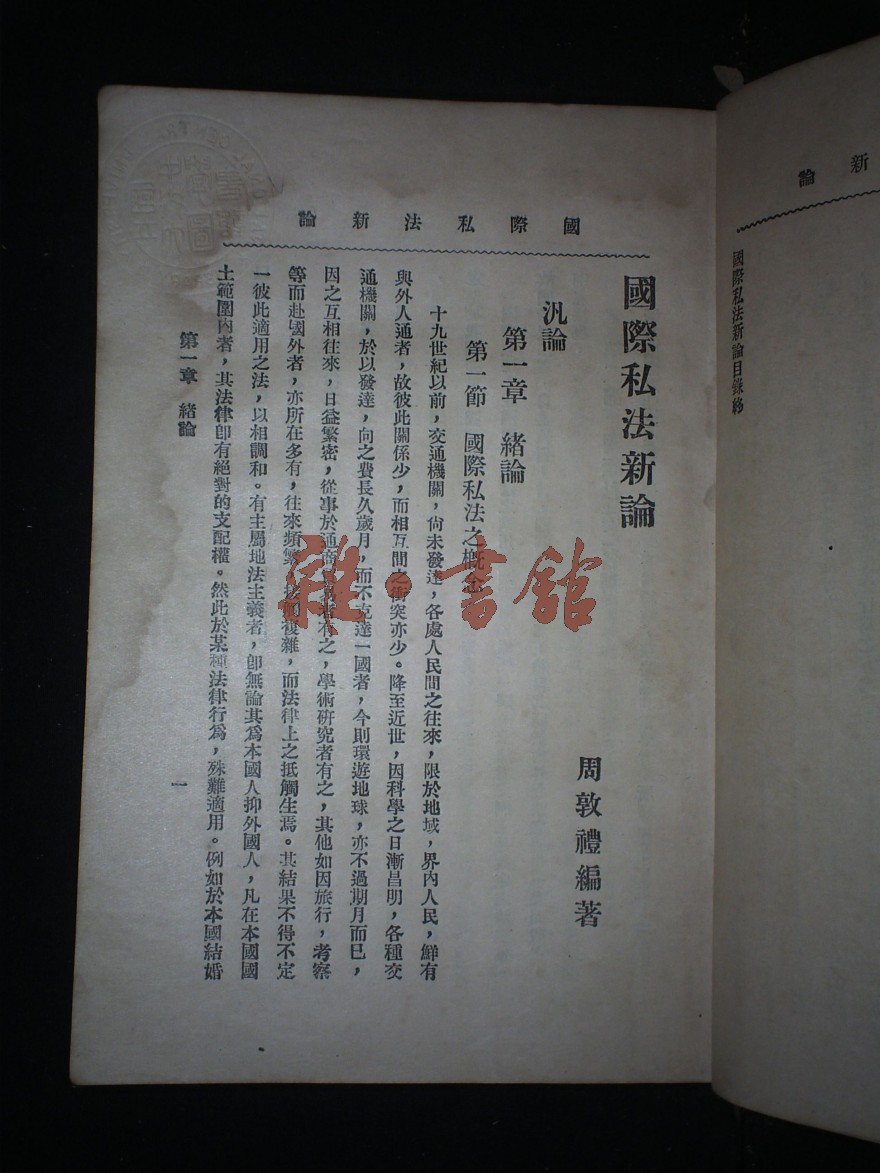 新論
國際私法新論目錄終
國際私法新論
國際私法新論
周敦禮編著
汎論
第一章 緒論
第一節 國際私法之概念
十九世紀以前，交通機關，尚未發達，各處人民間之往來，限於地域，界內人民，鮮有
與外人通者，故彼此關係少，而相互間之衝突亦少。降至近世，因科學之日漸昌明，各種交
通機關，於以發達，向之費長久歲月，而不克達一國者，今則環遊地球，亦不過期月而已，
因之互相往來，日益繁密，從事於通商者有之，學術研究者有之，其他如因旅行，考察
等而赴國外者，亦所在多有，往來頻繁，複雜，而法律上之抵觸生焉。其結果不得不定
一彼此適用之法，以相調和。有主屬地法主義者，卽無論其爲本國人抑外國人，凡在本國國
土範圍內者，其法律卽有絕對的支配權。然此於某種法律行爲，殊難適用。例如於本國結婚
第一章 緒論
一
雜·書館